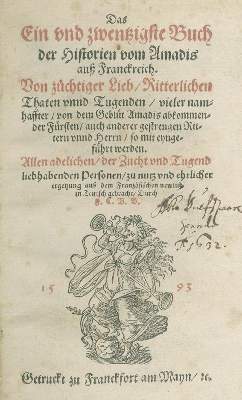 Das
Ein vnd zwentzigste Buch
der Historien vom Amadis
auß Franckreich.
Von züchtiger Lieb/ Ritterlichen
Thaten vnnd Tugenden/ vieler nam-
haffter/ von dem Geblüt Amadis abkommen-
der Fürsten/ auch anderer gestrengen Rit-
tern vnnd Herrn/ so mit eynge-
führt werden.
Allen adelichen/ der Zucht vnd Tugend
liebhabenden Personen/ zu nutz vnd ehrlicher
ergetzung auß dem Frantzösischen newlich
in Teutsch gebracht/ Durch
1632.
15 93
Getruckt zu Franckfort am Mayn/ ꝛc.